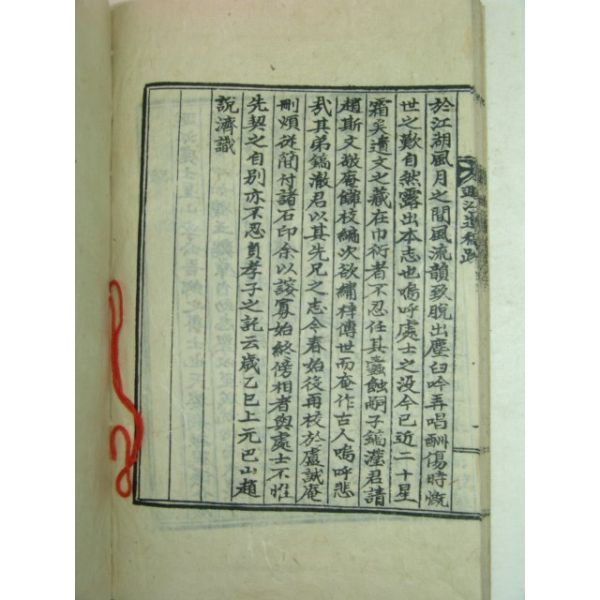 於江湖風月之間風流韻致脫出塵臼吟弄唱酬傷時慨
世之歎自然露出本志也嗚呼處士之没今已近二十星
霜矣遺文之藏在巾衍者不忍任其蠹蝕嗣子鎬瀅君請
趙斯文敬庵讎校編次欲繡梓傳世而庵作古人嗚呼悲
哉其弟鎬澈君以其先兄之志今春始役再校於盧誠庵
刪煩從簡付諸石印余以諛寡始終傍相者與處士不惟
先契之自別亦不忍負孝子之託云歲乙巳上元巴山趙
說濟識
遺稿跋